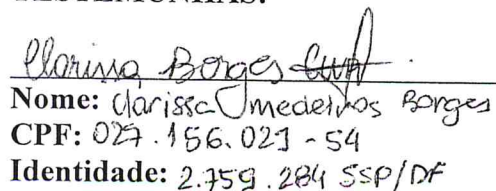 TESTEMUNHAS:
Clarissa Borges
Nome: Clarissa medeiros Borges
CPF: 027.156.021-54
Identidade: 2.759.284 SSP/DF